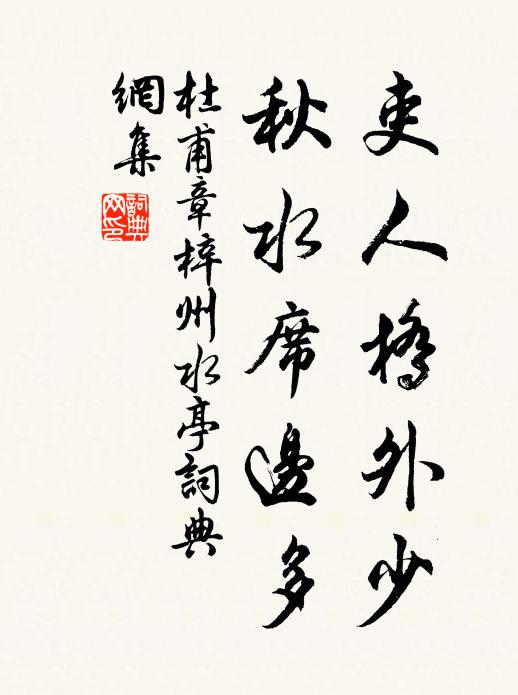 吏人橋外少
秋水席邊多
杜甫章梓州水亭詞典
網集
詞典
网印